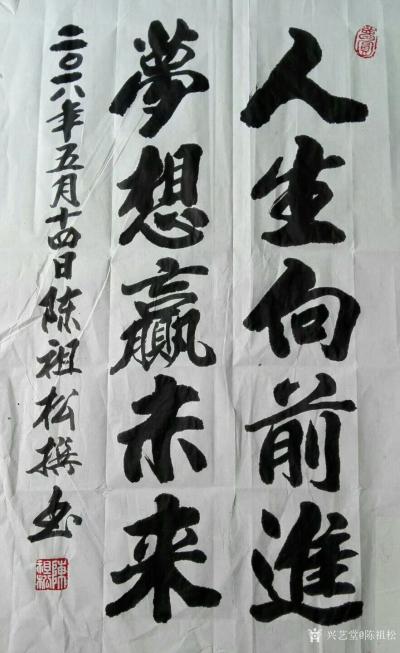 人生向前進
夢想贏未来
二〇一八年五月十四日陈祖松撰书
陳祖松
兴艺堂@陈祖松